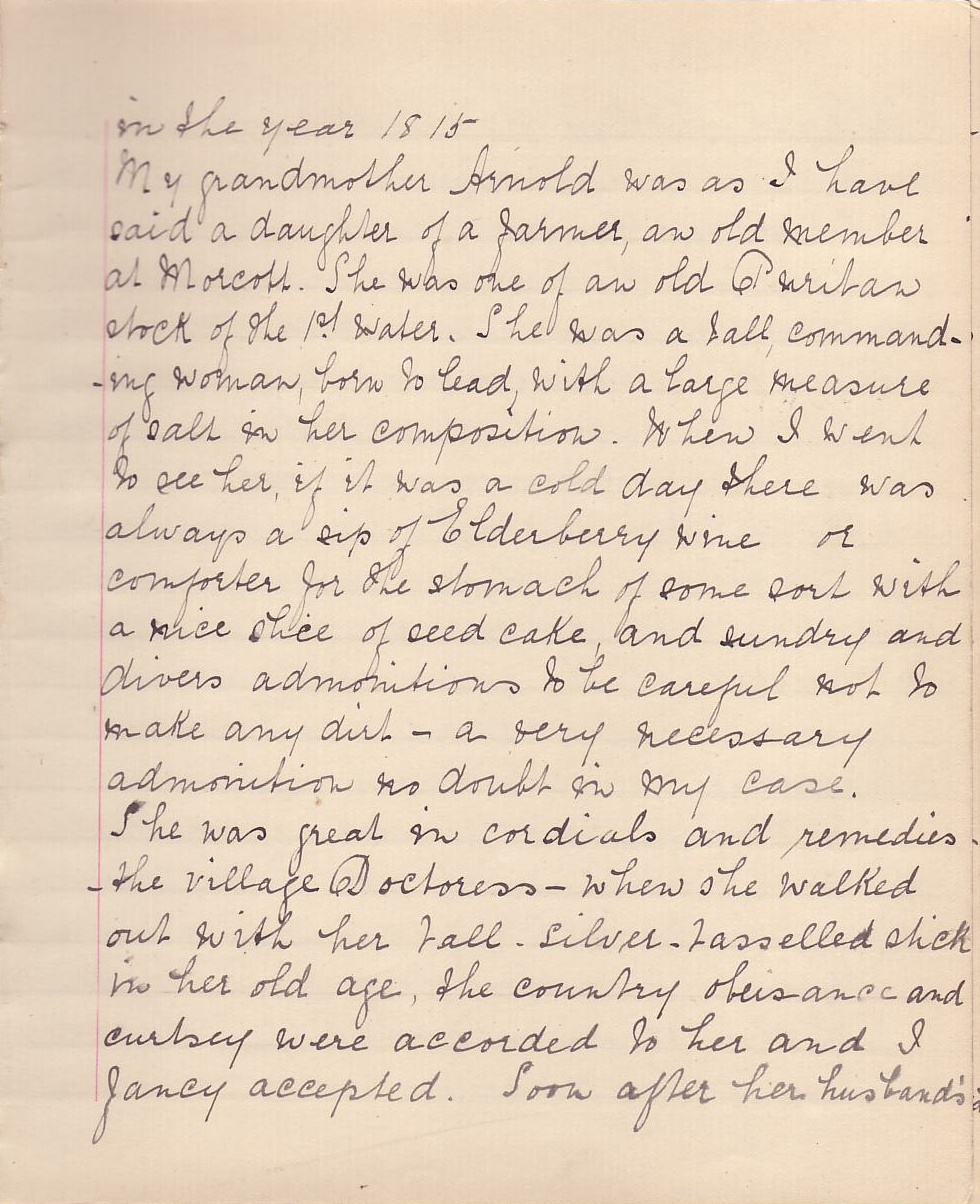 in the year 1815
My grandmother Arnold was as I have
said a daughter of a farmer, an old member
at Morcott. She was one of an old Puritan
stock of the 1st water. She was a tall, command-
-ing woman, born to lead, with a large measure
of salt in her composition. When I went
to see her, if it was a cold day there was
always a sip of Elderberry wine or
comforter for the stomach of some sort with
a nice slice of seed cake, and sundry and
divers admonitions to be careful not to
make any dirt - a very necessary
admonition no doubt in my case.
She was great in cordials and remedies -
- the village Doctoress - when she walked
out with her tall - silver - tasselled stick
in her old age, the country obeisance and
curtsey were accorded to her and I
fancy accepted. Soon after her husband's